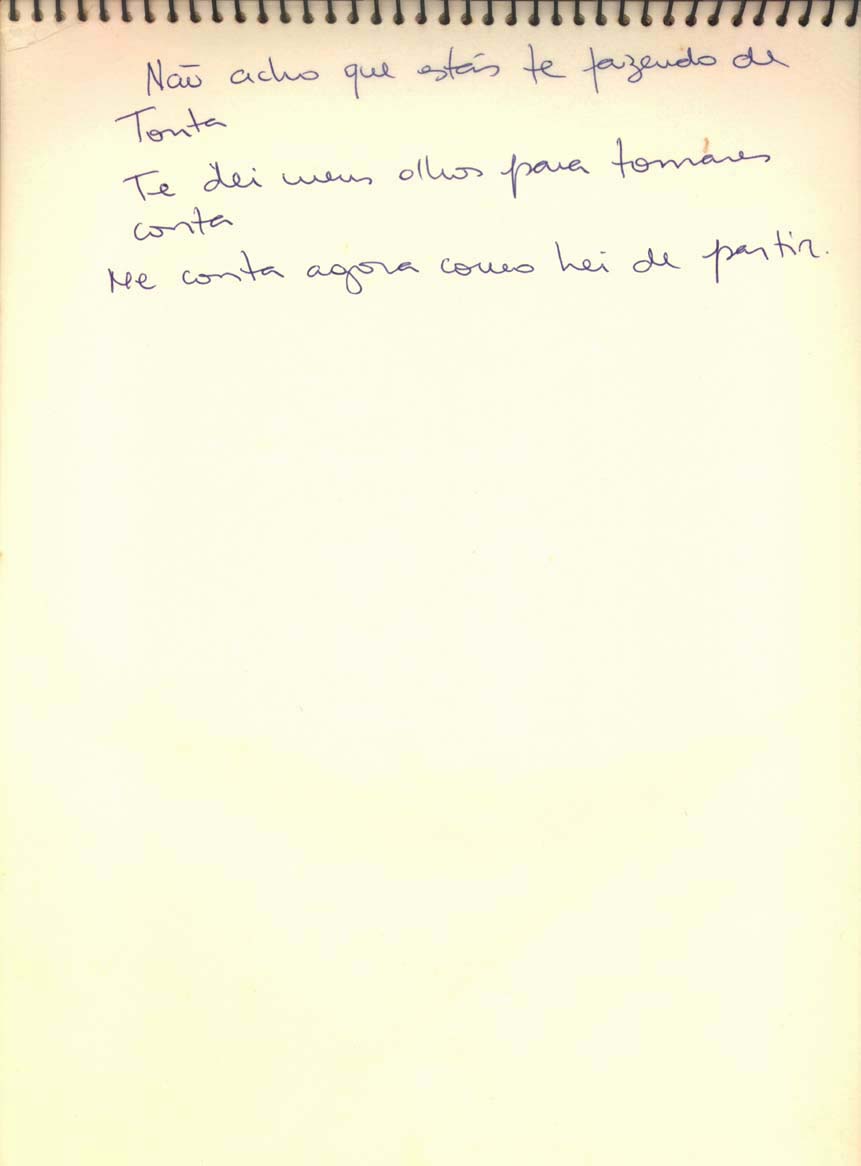 Não acho que estás te fazendo de
Tonta
Te dei meus olhos para tomares
conta
Me conta agora como hei de partir.